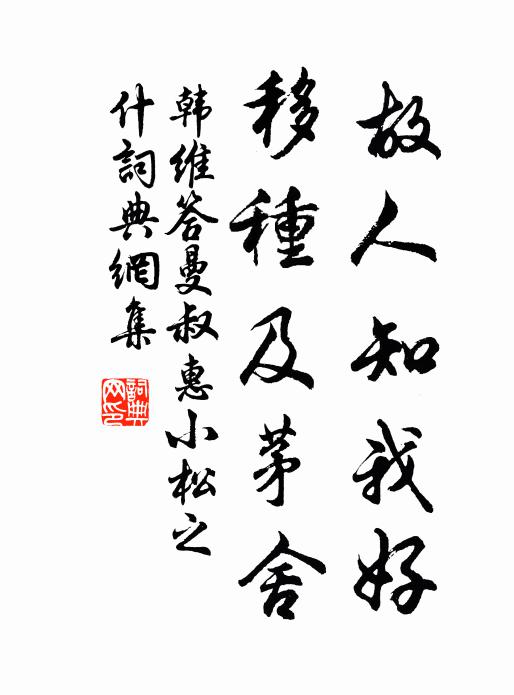 故人知我好
移種及茅舍
韩維答曼叔惠小松之
什詞典網集
詞典
网印